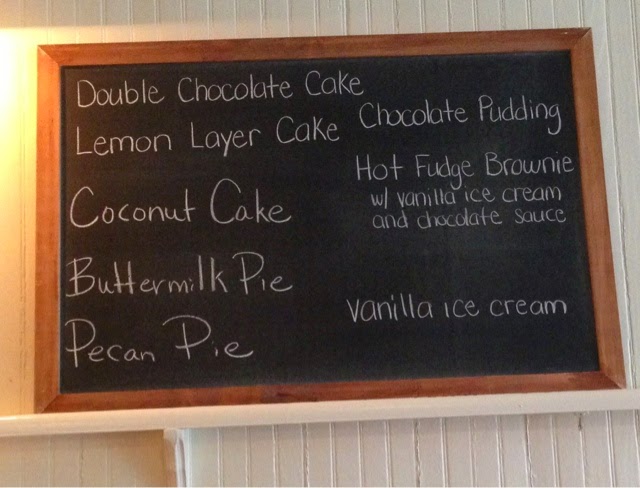 Double Chocolate Cake
Lemon Layer Cake
Coconut Cake
Buttermilk Pie
Pecan Pie
Chocolate Pudding
Hot Fudge Brownie
w/ vanilla ice cream
and chocolate sauce
vanilla ice cream